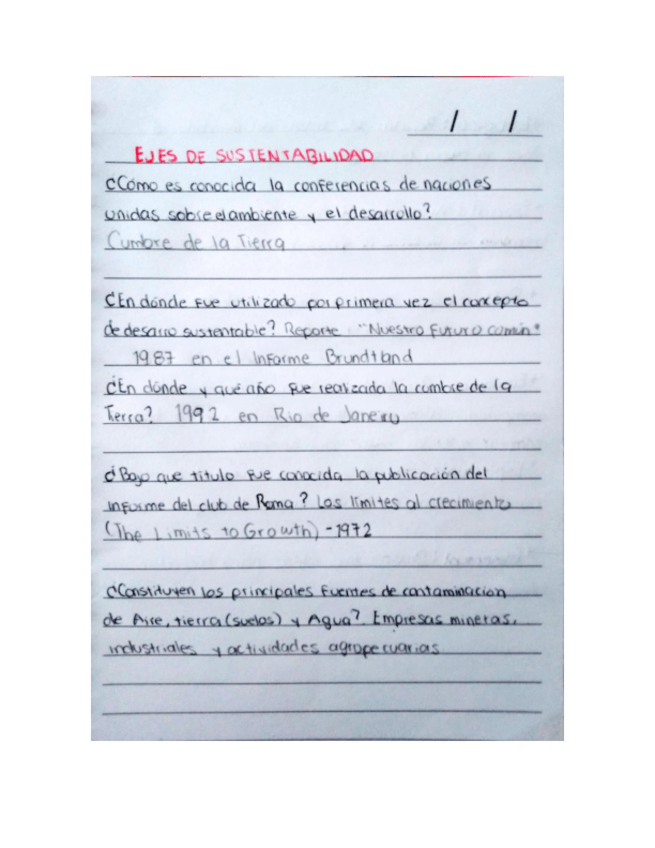 / /
EJES DE SUSTENTABILIDAD
¿Cómo es conocida la conferencias de naciones
unidas sobre el ambiente y el desarrollo?
Cumbre de la Tierra
¿En dónde fue utilizado por primera vez el concepto
de desarro sustentable? Reporte: "Nuestro Futuro común"
1987 en el Informe Brundtland
¿En dónde y qué año fue realizada la cumbre de la
Tierra? 1992 en Rio de Janeiro
¿Bajo que título fue conocida la publicación del
informe del club de Roma? Los límites al crecimiento
(The Limits to Growth) - 1972
¿Constituyen los principales fuentes de contaminación
de Aire, tierra (suelos) y Agua? Empresas mineras,
industriales y actividades agropecuarias